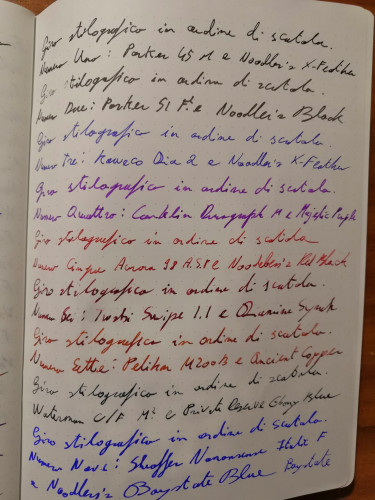 Giro stilografico in ordine di scatola.
Numero Uno: Parker 45 M e Noodler's X-Feather
Giro stilografico in ordine di scatola.
Numero Due: Parker 51 F e Noodler's Black
Giro stilografico in ordine di scatola.
Numero Tre: Kaweco Dia 2 e Noodler's X-Feather
Giro stilografico in ordine di scatola.
Numero Quattro: Conklin Duragraph M e Majestic Purple
Giro stilografico in ordine di scatola
Numero Cinque Aurora 98 e Noodler's Red Black
Giro stilografico in ordine di scatola.
Numero Sei: Twsbi Swipe 1.1 e Diamine Syrah
Giro stilografico in ordine di scatola.
Numero Sette: Pelikan M200 B e Ancient Copper
Giro stilografico in ordine di scatola.
Waterman C/F e Private Reserve Ebony Blue
Giro stilografico in ordine di scatola.
Numero Nove: Sheaffer Italic F
e Noodler's Baystate Blue Baystate